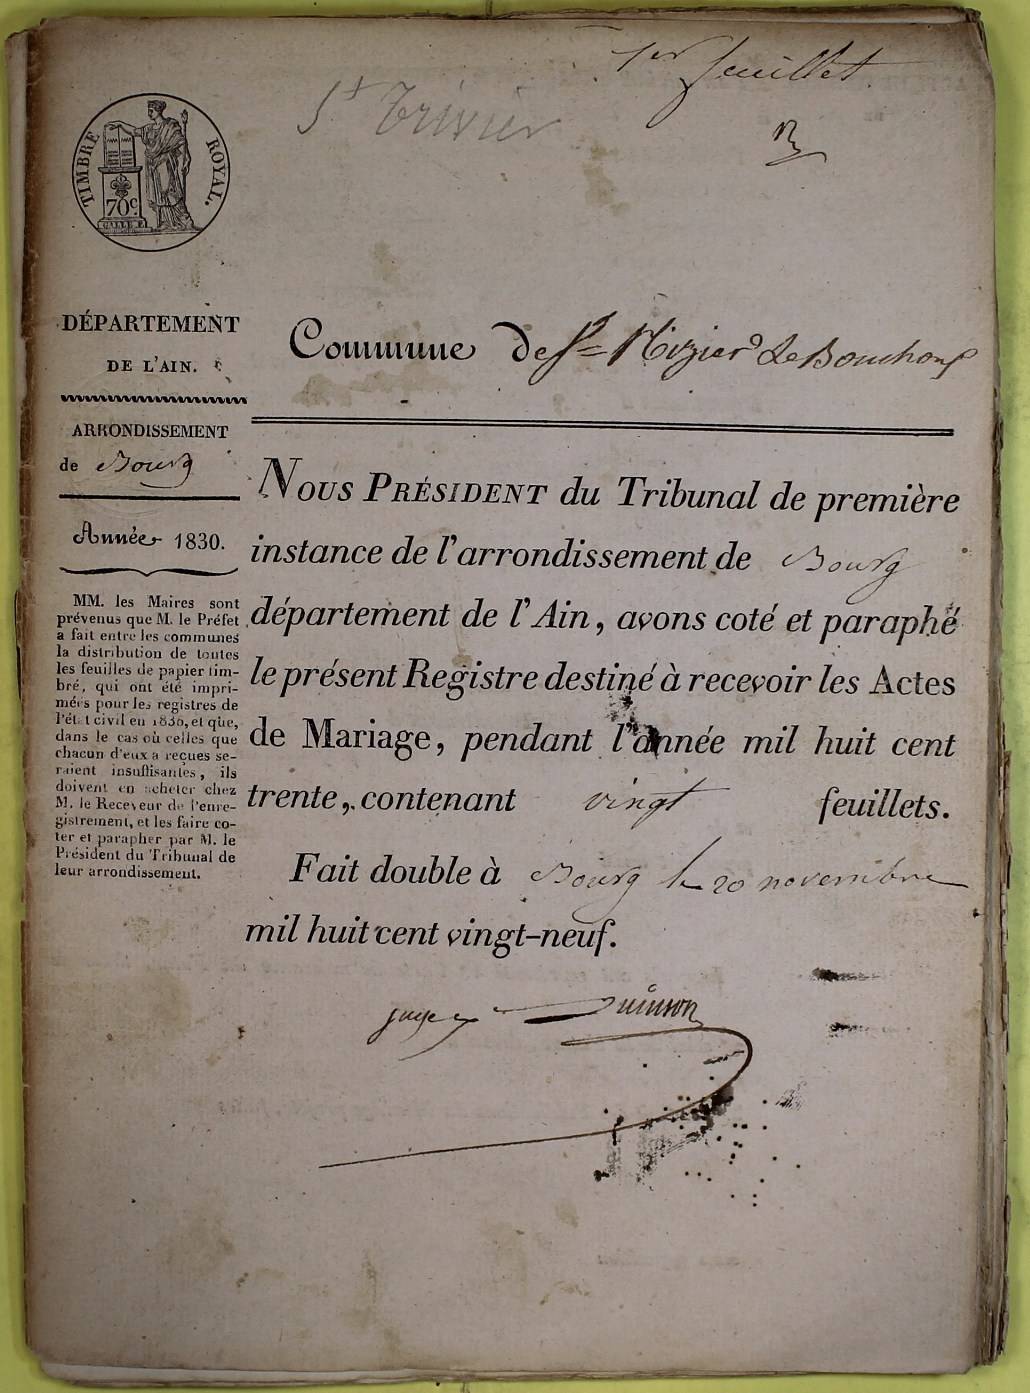 1er feuillet
St Trivier
TIMBRE ROYAL.
70c.
DÉPARTEMENT
DE L'AIN.
Commune de St Nizier Le Bouchoux
ARRONDISSEMENT
de Bourg
Année 1830.
MM. les Maires sont
prévenus que M. le Préfet
a fait entre les communes
la distribution de toutes
les feuilles de papier tim-
bré, qui ont été impri-
mées pour les registres de
l'état civil en 1830, et que,
dans le cas où celles que
chacun d'eux a reçues se-
raient insuffisantes, ils
doivent en acheter chez
M. le Receveur de l'enre-
gistrement, et les faire co-
ter et parapher par M. le
Président du Tribunal de
leur arrondissement.
NOUS PRÉSIDENT du Tribunal de première
instance de l'arrondissement de Bourg
département de l'Ain, avons coté et paraphé
le présent Registre destiné à recevoir les Actes
de Mariage, pendant l'année mil huit cent
trente, contenant vingt feuillets.
Fait double à Bourg le 20 novembre
mil huit cent vingt-neuf.